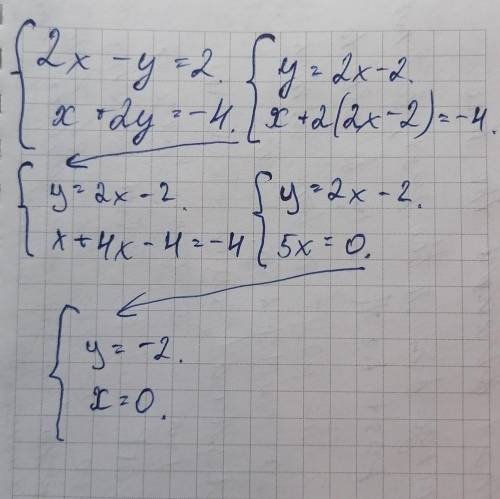 2x - y = 2.
x + 2y = -4.
y = 2x - 2.
x + 2(2x - 2) = -4.
y = 2x - 2.
x + 4x - 4 = -4
y = 2x - 2.
5x = 0.
y = -2.
x = 0.